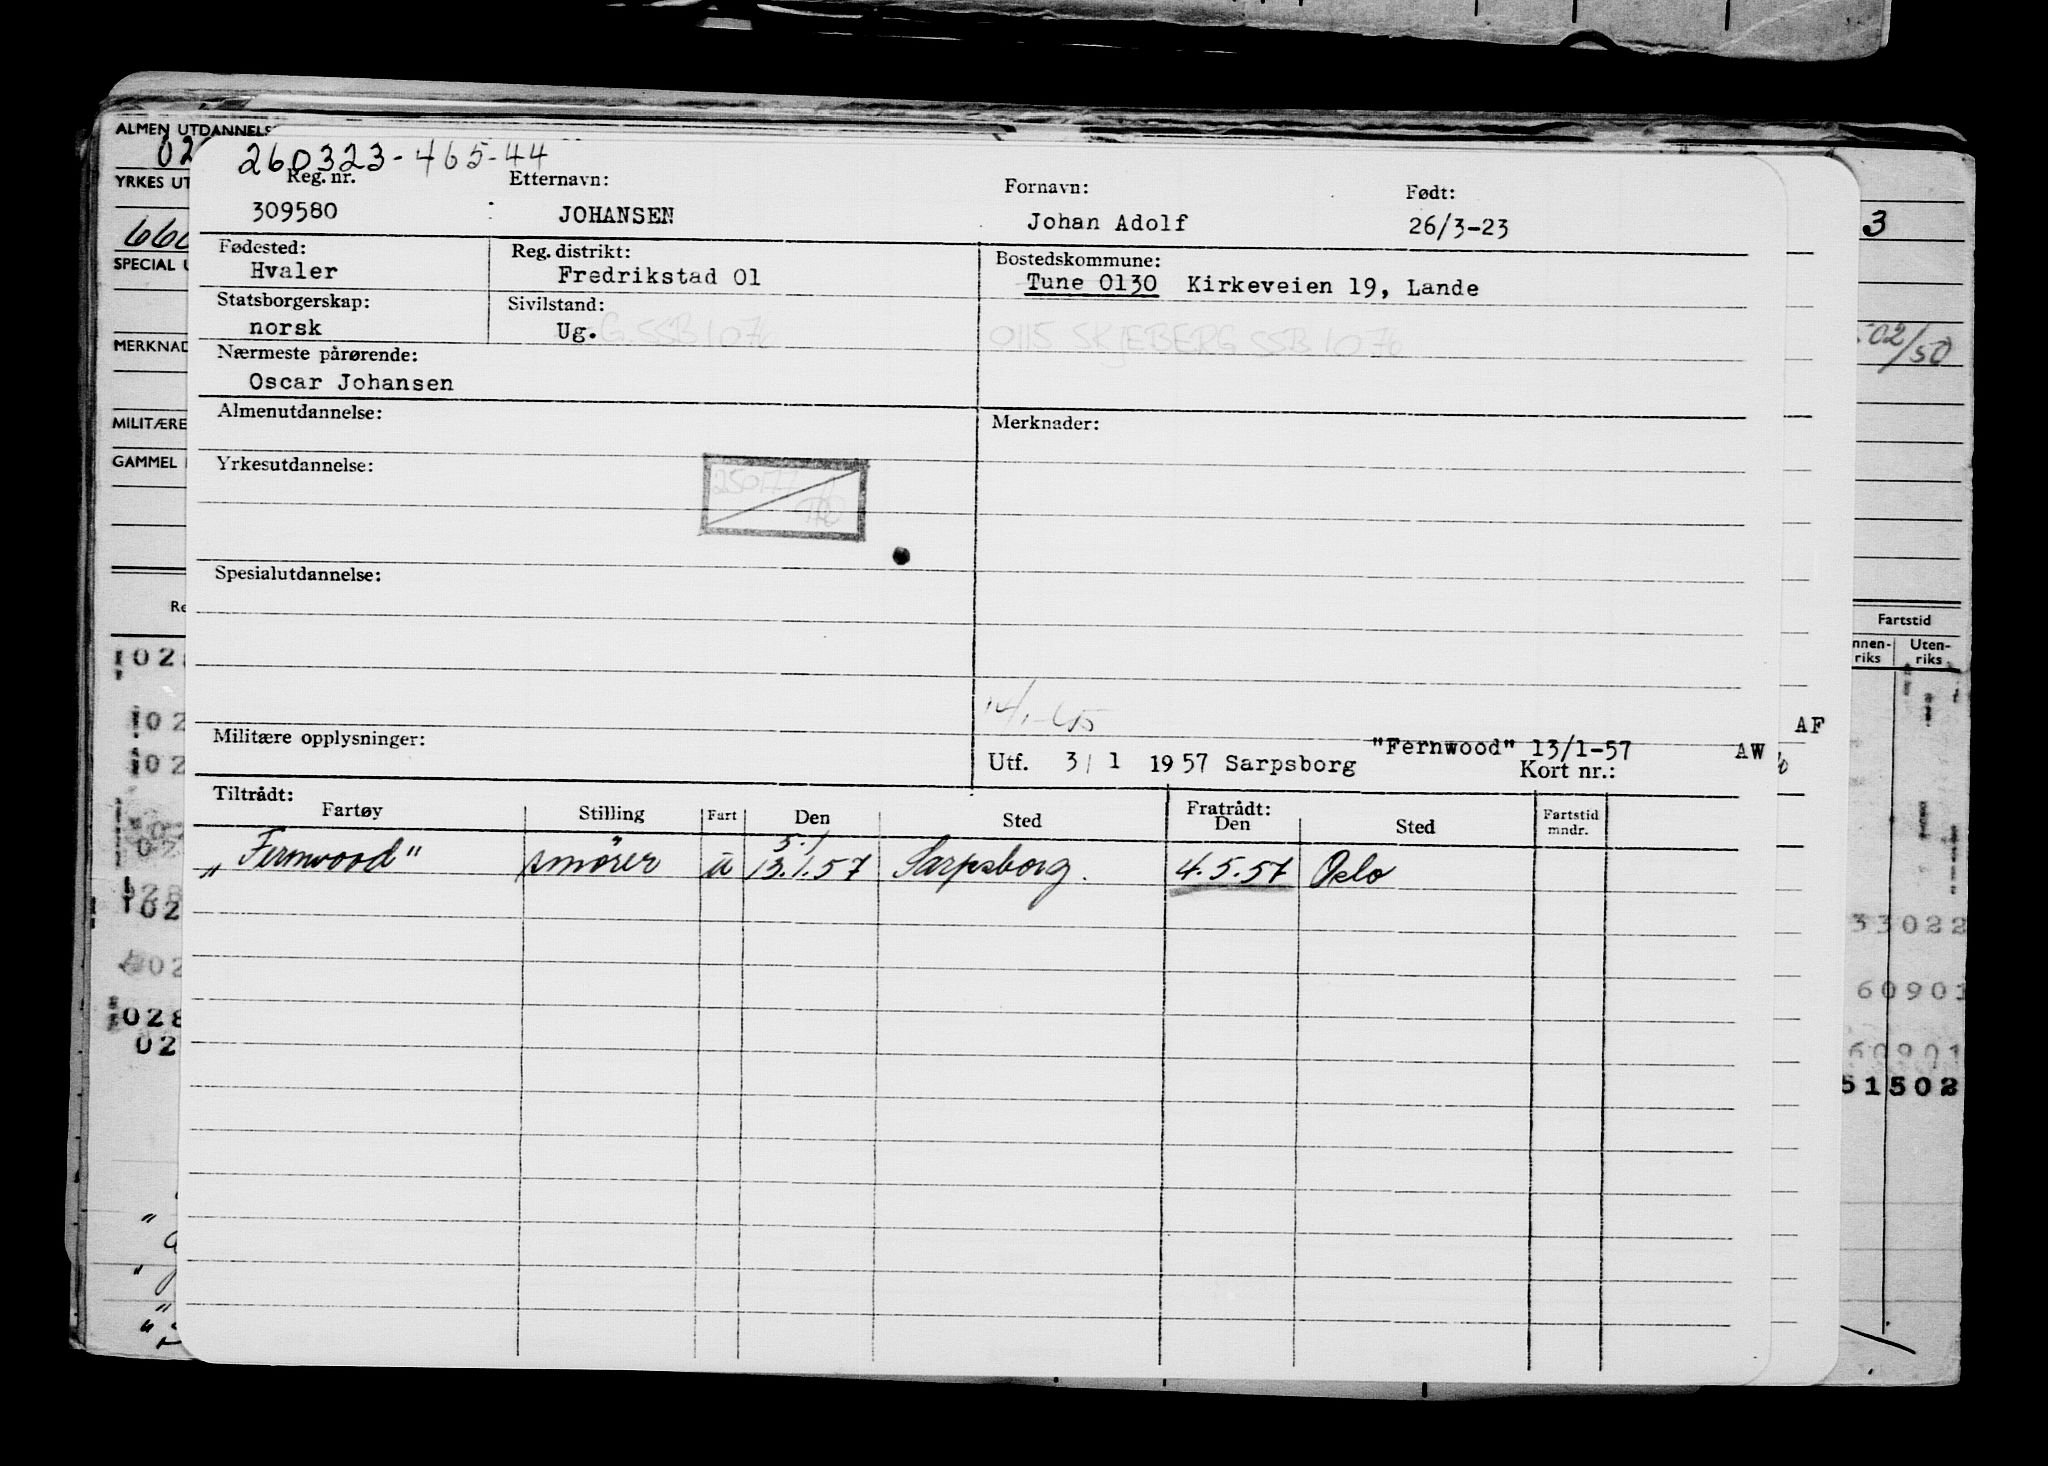 ALMEN UTDANNELS
260323-465-44
YRKES UT
Reg. nr. Etternavn: Fornavn: Født:
309580 : JOHANSEN Johan Adolf 26/3-23
3
SPECIAL U
Fødested: Reg. distrikt: Bostedskommune:
Hvaler Fredrikstad 01 Tune 0130 Kirkeveien 19, Lande
Statsborgerskap: Sivilstand:
norsk Ug. G. SSB 1076 0115 SKJEBERG SSB 1076
02/50
MERKNAD
Nærmeste pårørende:
Oscar Johansen
MILITÆRE
Almenutdannelse: Merknader:
GAMMEL
Yrkesutdannelse:
Spesialutdannelse:
Fartstid
nnen-riks Uten-riks
AF
Militære opplysninger:
"Fernwood" 13/1-57 AW
Utf. 3/1 1957 Sarpsborg Kort nr.:
Tiltrådt: Fratrådt:
Fartøy Stilling Fart Den Sted Den Sted Fartstid mndr.
5/1
„Fernwood" smører u 13.1.57 Sarpsborg. 4.5.57 Oslo
33022
60901
60901
51502